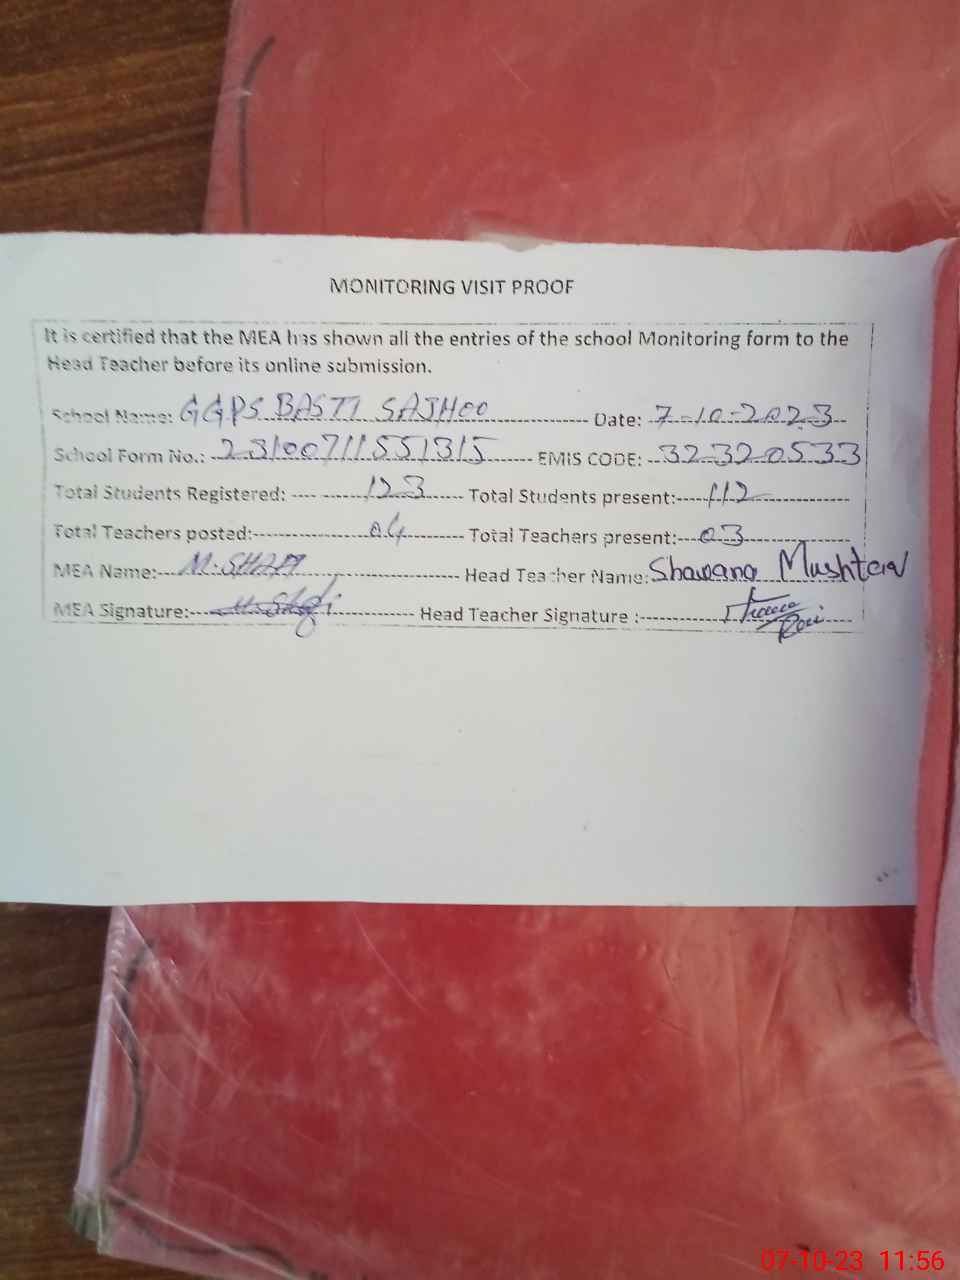 MONITORING VISIT PROOF
It is certified that the MEA has shown all the entries of the school Monitoring form to the
Head Teacher before its online submission.
School Name: GGPS BASTI SAJHOO Date: 7-10-2023
School Form No.: 23100711551315 EMIS CODE: 32320533
Total Students Registered: 123 Total Students present: 112
Total Teachers posted: 04 Total Teachers present: 03
MEA Name: M. SHAFI Head Teacher Name: Shawana Mushtaq
MEA Signature: M. Shafi Head Teacher Signature :
07-10-23 11:56